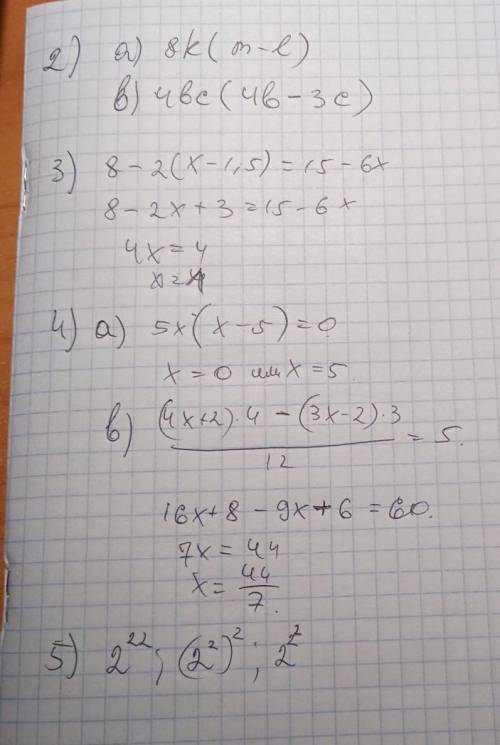 2) а) 8k(m-l)
в) 4bc(4b-3c)
3) 8-2(x-1,5)=15-6x
8-2x+3=15-6x
4x=4
x=1
4) а) 5x(x-5)=0
x=0 или x=5.
в) ((4x+2)·4-(3x-2)·3)/12=5.
16x+8-9x+6=60.
7x=44
x=44/7.
5) 2^22; (2^2)^2; 2^7